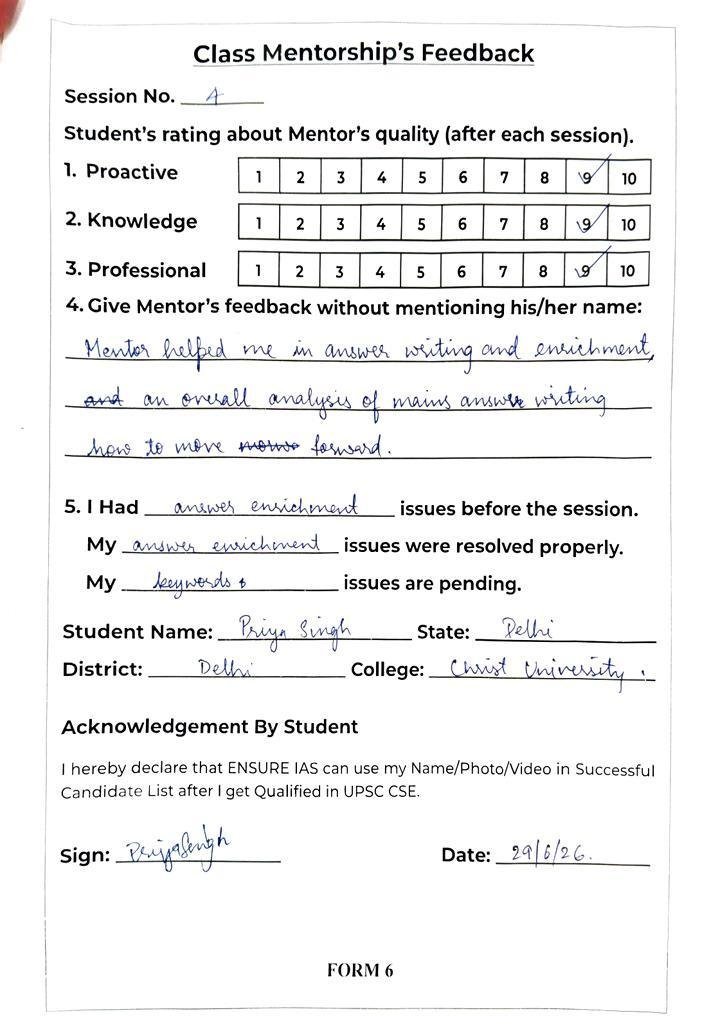 Class Mentorship's Feedback
Session No. 4
Student's rating about Mentor's quality (after each session).
1. Proactive 1 2 3 4 5 6 7 8 9 10
2. Knowledge 1 2 3 4 5 6 7 8 9 10
3. Professional 1 2 3 4 5 6 7 8 9 10
4. Give Mentor's feedback without mentioning his/her name:
Mentor helped me in answer writing and enrichment,
and an overall analysis of mains answer writing
how to move forward.
5. I Had answer enrichment issues before the session.
My answer enrichment issues were resolved properly.
My keywords issues are pending.
Student Name: Priya Singh State: Delhi
District: Delhi College: Christ University.
Acknowledgement By Student
I hereby declare that ENSURE IAS can use my Name/Photo/Video in Successful
Candidate List after I get Qualified in UPSC CSE.
Sign: PriyaSingh Date: 29/6/26.
FORM 6